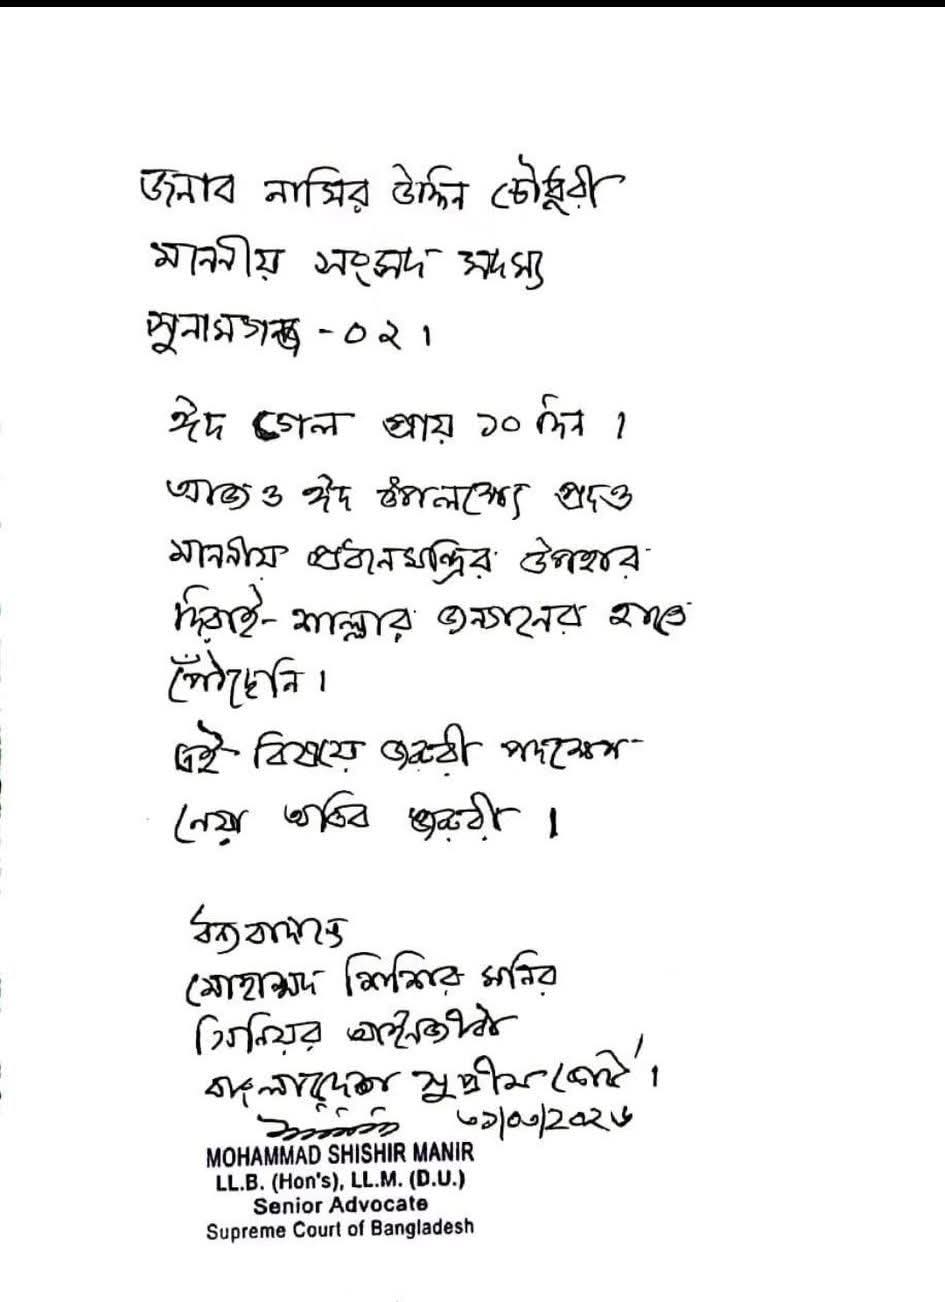 জনাব নাসির উদ্দিন চৌধুরী
মাননীয় সংসদ সদস্য
সুনামগঞ্জ - ০২।
ঈদ গেল প্রায় ১০ দিন।
আজও ঈদ উপলক্ষ্যে প্রদত্ত
মাননীয় প্রধানমন্ত্রির উপহার
দিরাই - শাল্লার জনগনের হাতে
পৌঁছেনি।
এই বিষয়ে জরুরী পদক্ষেপ
নেয়া অতিব জরুরী।
ধন্যবাদান্তে
মোহাম্মদ শিশির মনির
সিনিয়র আইনজীবী
বাংলাদেশ সুপ্রীম কোর্ট।
৩১/০৩/2026
MOHAMMAD SHISHIR MANIR
LL.B. (Hon's), LL.M. (D.U.)
Senior Advocate
Supreme Court of Bangladesh